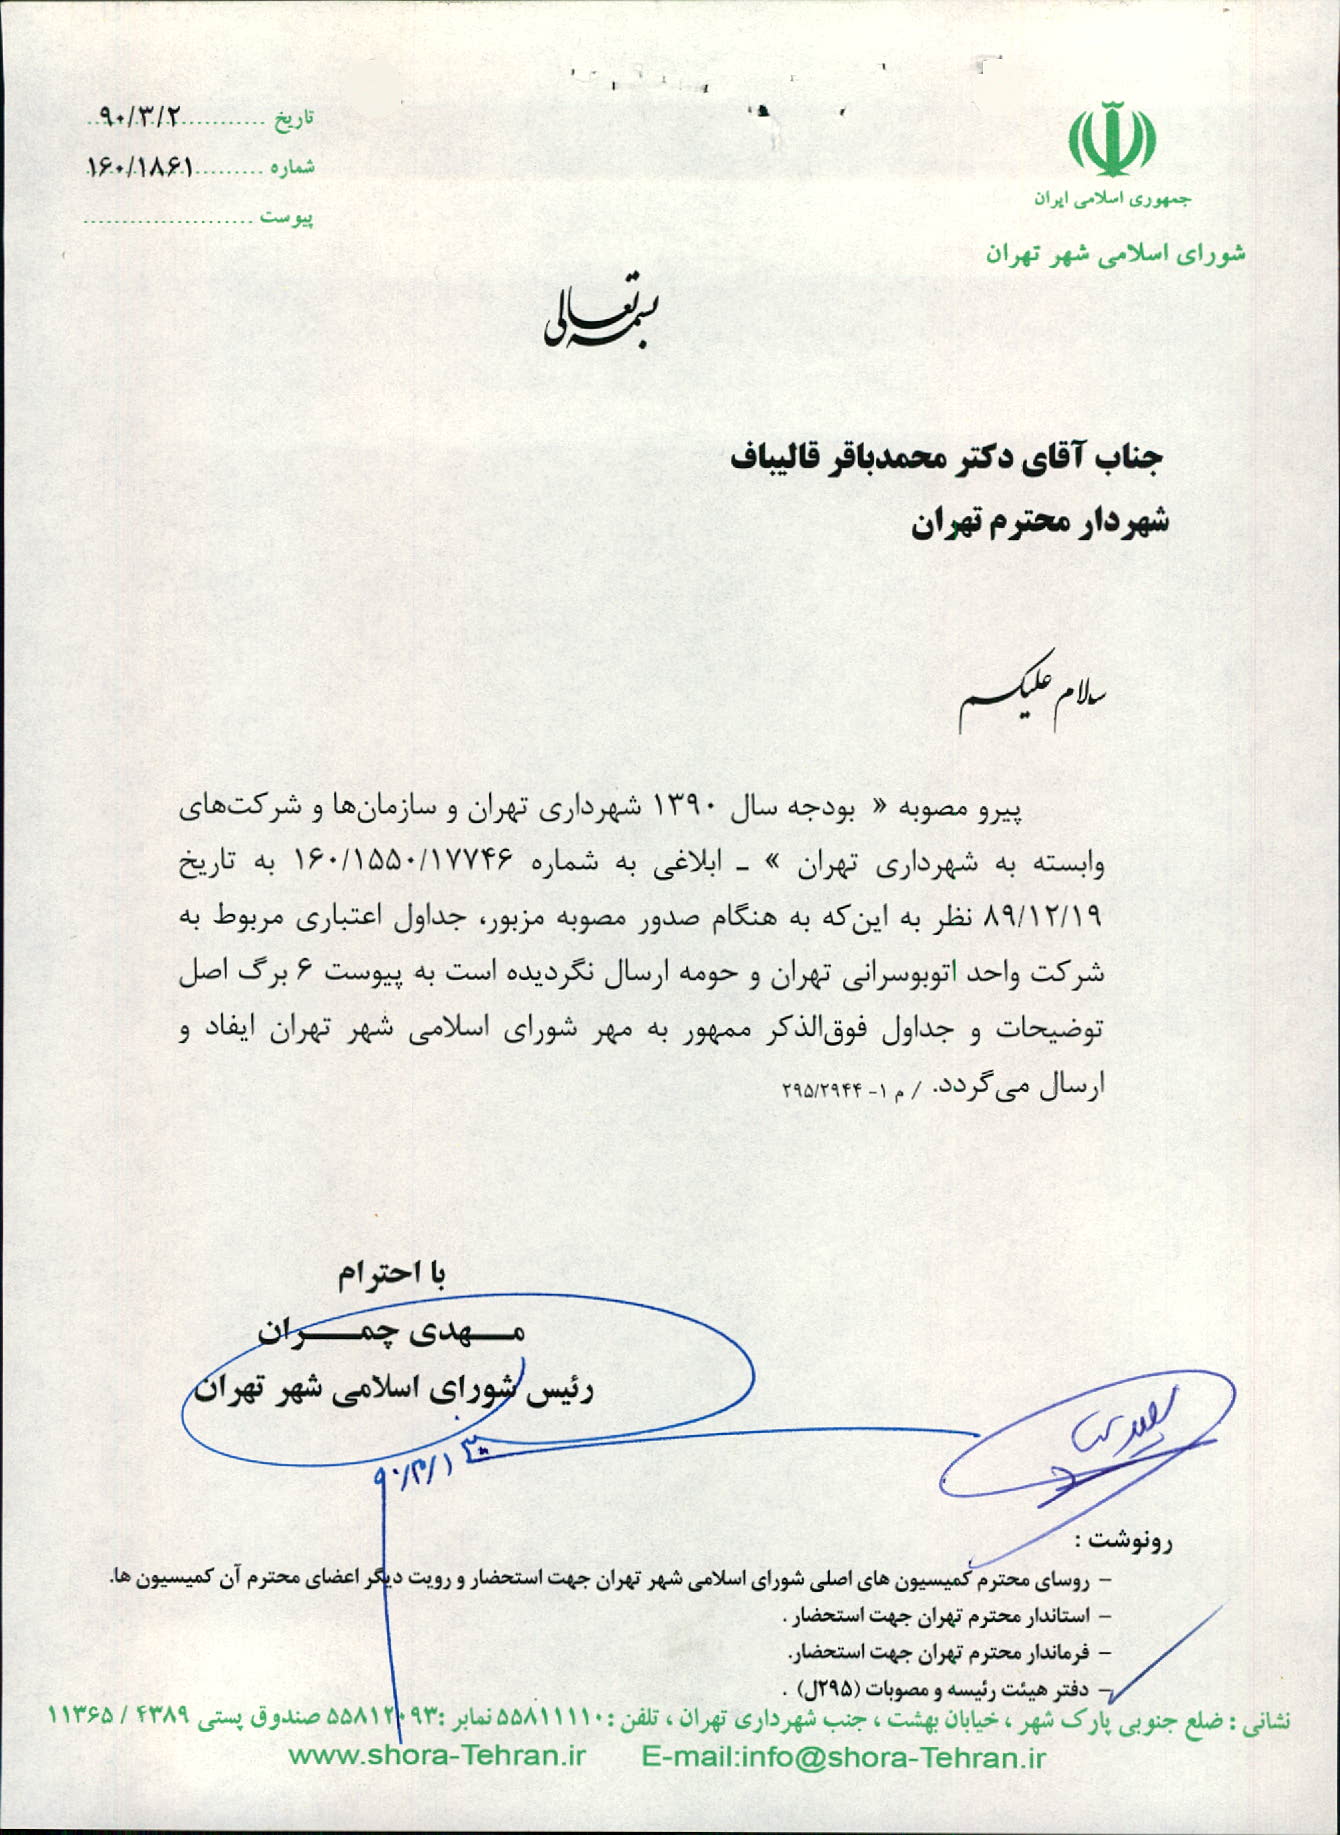 جمهوری اسلامی ایران
شورای اسلامی شهر تهران
تاریخ ............ ۹۰/۳/۲
شماره ............ ۱۶۰/۱۸۶۱
پیوست ......................
بسمه تعالی
جناب آقای دکتر محمدباقر قالیباف
شهردار محترم تهران
سلام علیکم
پیرو مصوبه « بودجه سال ۱۳۹۰ شهرداری تهران و سازمان‌ها و شرکت‌های
وابسته به شهرداری تهران » ـ ابلاغی به شماره ۱۶۰/۱۵۵۰/۱۷۷۴۶ به تاریخ
۸۹/۱۲/۱۹ نظر به این‌که به هنگام صدور مصوبه مزبور، جداول اعتباری مربوط به
شرکت واحد اتوبوسرانی تهران و حومه ارسال نگردیده است به پیوست ۶ برگ اصل
توضیحات و جداول فوق‌الذکر ممهور به مهر شورای اسلامی شهر تهران ایفاد و
ارسال می‌گردد. / م ۱- ۲۹۵/۲۹۴۴
با احترام
مـــهدی چمـــران
رئیس شورای اسلامی شهر تهران
رونوشت :
– روسای محترم کمیسیون های اصلی شورای اسلامی شهر تهران جهت استحضار و رویت دیگر اعضای محترم آن کمیسیون ها.
– استاندار محترم تهران جهت استحضار .
– فرماندار محترم تهران جهت استحضار.
– دفتر هیئت رئیسه و مصوبات (۲۹۵ل) .
نشانی : ضلع جنوبی پارک شهر ، خیابان بهشت ، جنب شهرداری تهران ، تلفن :۵۵۸۱۱۱۱۰ نمابر :۵۵۸۱۲۰۹۳ صندوق پستی ۴۳۸۹ / ۱۱۳۶۵
www.shora-Tehran.ir E-mail:info@shora-Tehran.ir